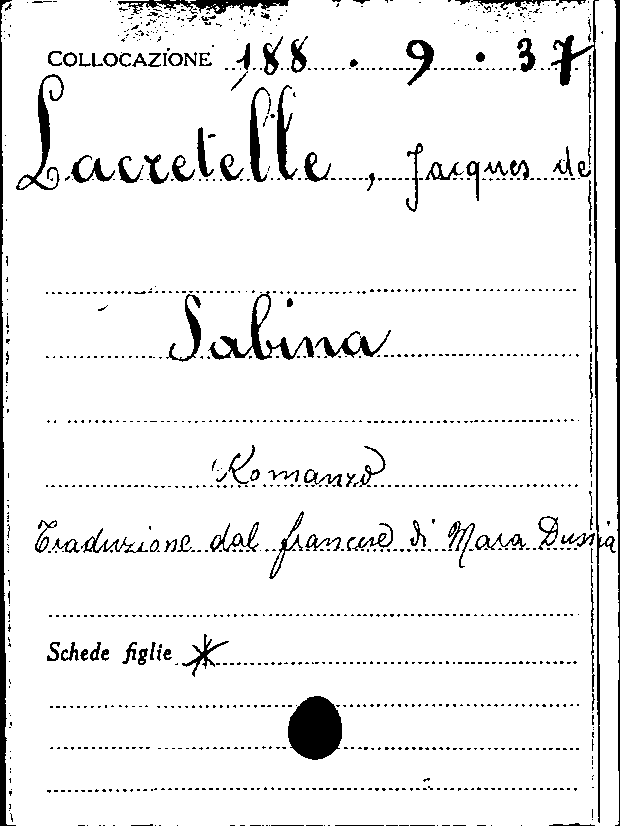 COLLOCAZIONE 188 . 9 . 37
Lacretelle, Jacques de
Sabina
Romanzo
Traduzione dal francese di Mara Dussia
Schede figlie *